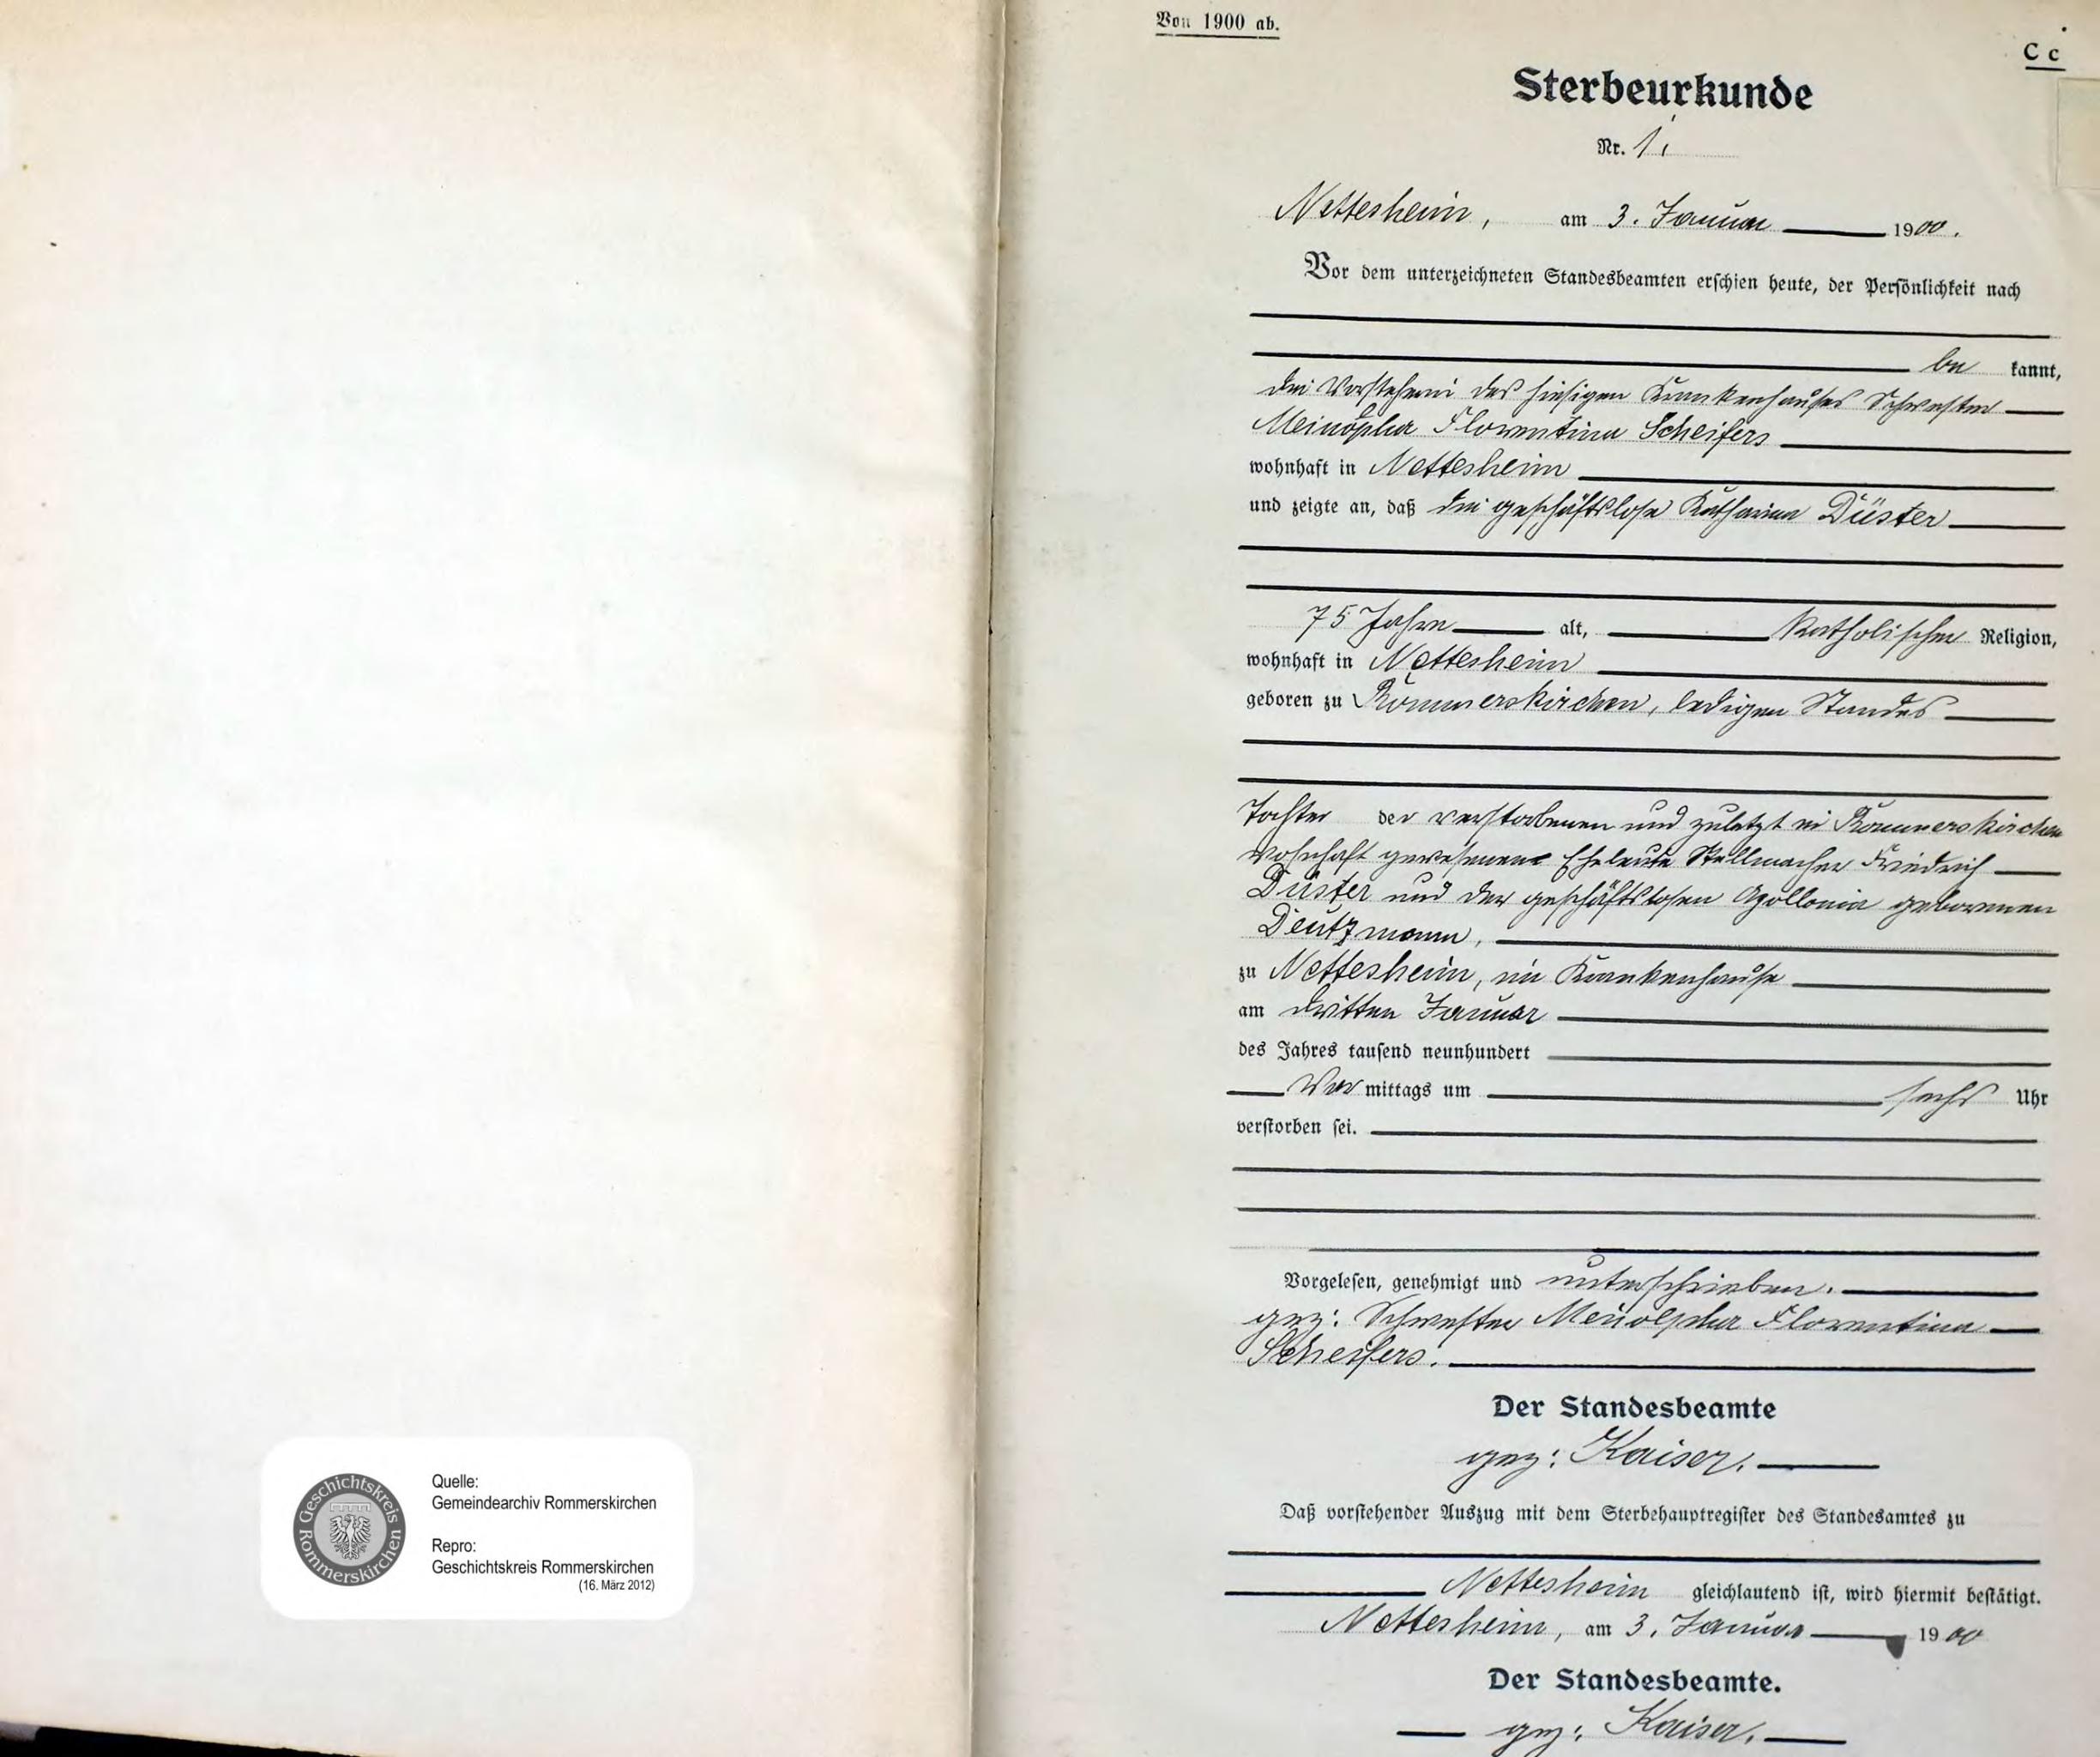 Von 1900 ab.
C c
Sterbeurkunde
Nr. 1.
Nettesheim, am 3. Januar 1900.
Vor dem unterzeichneten Standesbeamten erschien heute, der Persönlichkeit nach
be kannt,
die Vorsteherin des hiesigen Krankenhauses Schwester
Meinolpha Florentina Scheifers
wohnhaft in Nettesheim
und zeigte an, daß die geschäftslose Katharina Düster
75 Jahre alt, katholischer Religion,
wohnhaft in Nettesheim
geboren zu Rommerskirchen, ledigen Standes
Tochter der verstorbenen und zuletzt in Rommerskirchen
wohnhaft gewesenen Eheleute Stellmacher Friedrich
Düster und der geschäftslosen Apollonia geborenen
Deutzmann,
zu Nettesheim, im Krankenhause
am dritten Januar
des Jahres tausend neunhundert
Vor mittags um sechs Uhr
verstorben sei.
Vorgelesen, genehmigt und unterschrieben.
gez: Schwester Meinolpha Florentina
Scheifers.
Der Standesbeamte
gez: Kaiser.
Daß vorstehender Auszug mit dem Sterbehauptregister des Standesamtes zu
Nettesheim gleichlautend ist, wird hiermit bestätigt.
Nettesheim, am 3. Januar 1900
Der Standesbeamte.
gez: Kaiser.
Geschichtskreis Rommerskirchen
Quelle:
Gemeindearchiv Rommerskirchen
Repro:
Geschichtskreis Rommerskirchen
(16. März 2012)